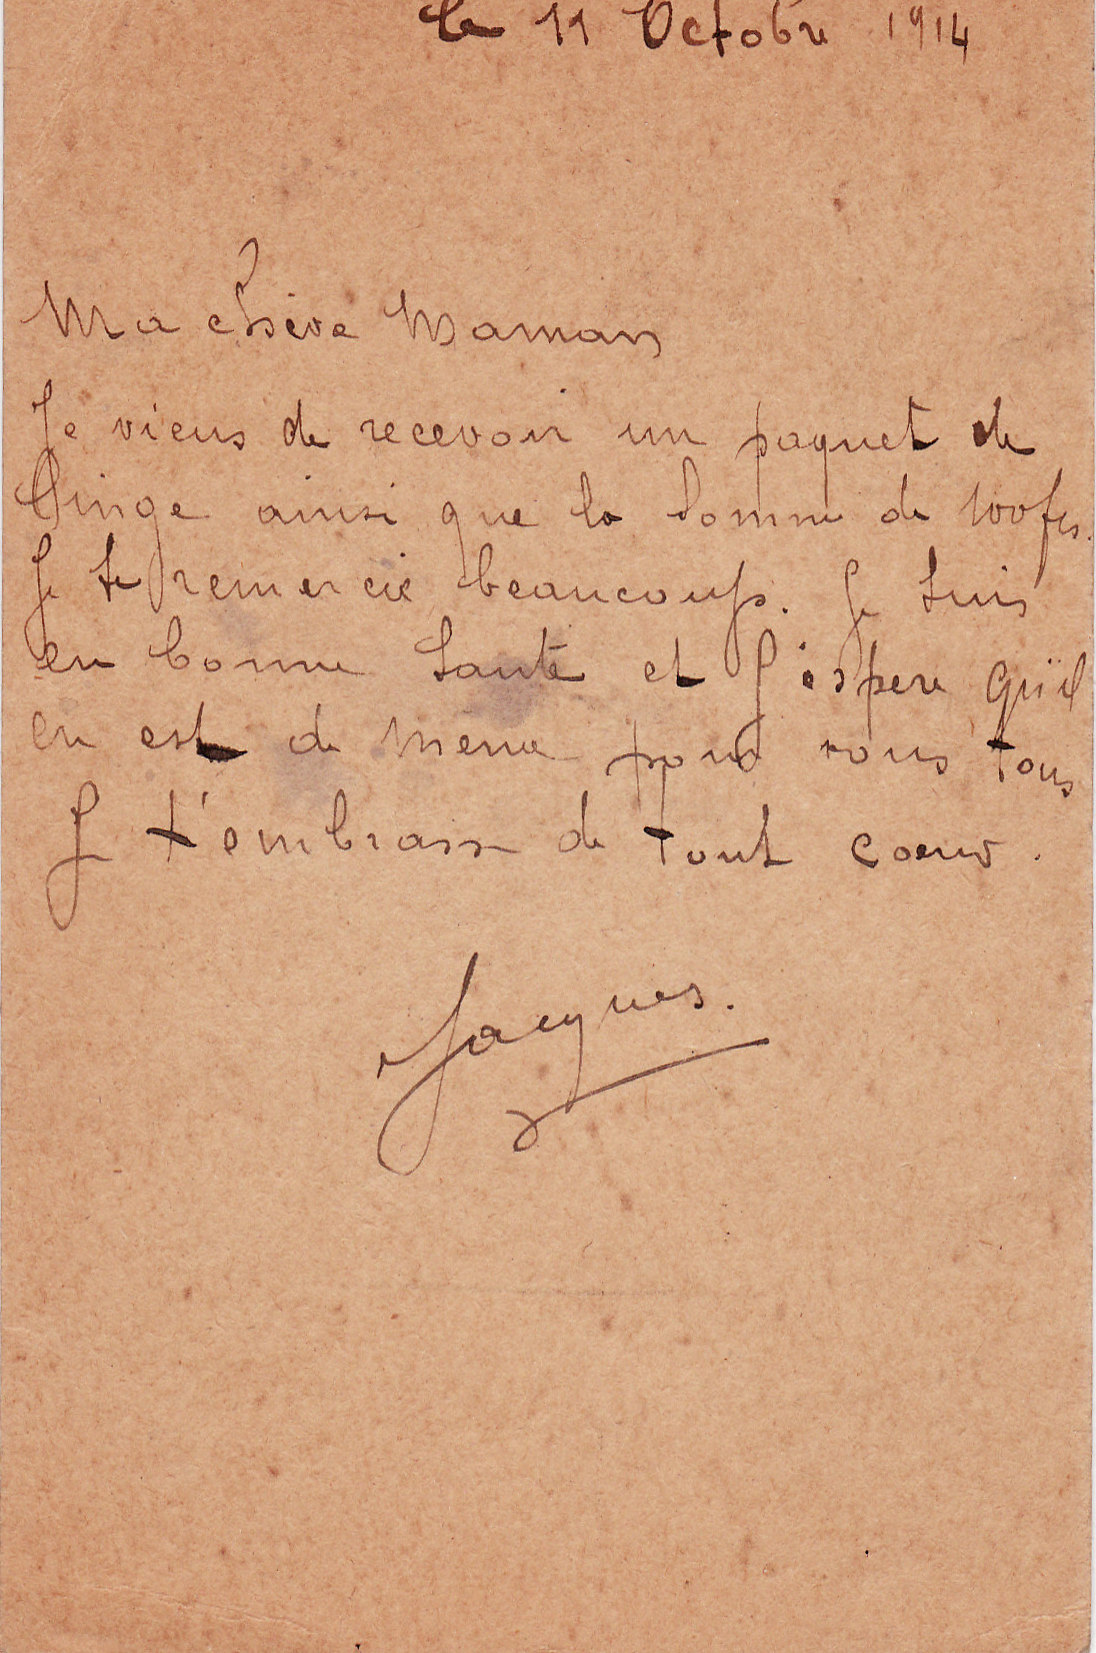 le 11 Octobre 1914
Ma chère Maman
Je viens de recevoir un paquet de
linge ainsi que la somme de 100 frs.
Je te remercie beaucoup. Je suis
en bonne santé et j'espere qu'il
en est de meme pour vous tous
Je t'embrasse de tout coeur.
Jacques.